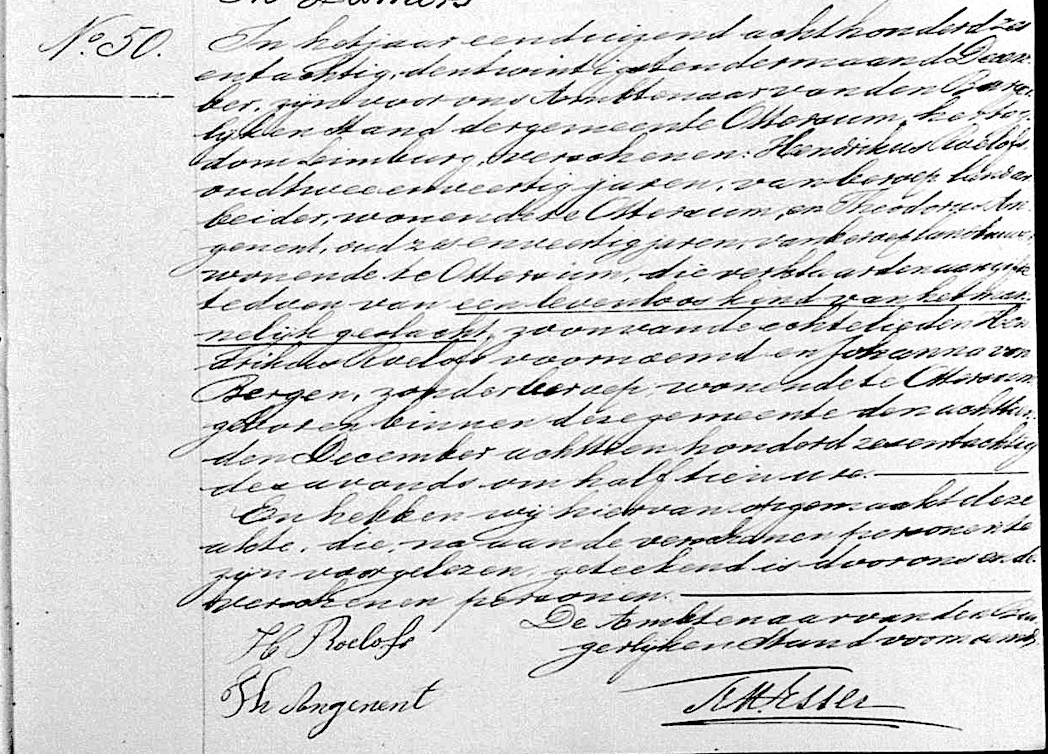 No 50.
In het jaar eenduizend achthonderd zes
entachtig, den twintigsten der maand Decem
ber, zijn voor ons Ambtenaar van den Burger
lijken Stand der gemeente Ottersum, hertog
dom Limburg, verschenen: Hendrikus Roelofs
oud twee en veertig jaren, van beroep landar
beider, wonende te Ottersum, en Theodorus An
genent, oud zes en veertig jaren, van beroep landbouwer
wonende te Ottersum, die verklaarden aangifte
te doen van een levenloos kind van het man
nelijk geslacht, zoon van de echtelieden Hen
drikus Roelofs voornoemd en Johanna van
Bergen, zonder beroep, wonende te Ottersum
geboren binnen deze gemeente den achttien
den December achttien honderd zesentachtig
des avonds om half tien ure.
En hebben wij hiervan opgemaakt deze
akte, die, na aan de verschenen personen te
zijn voorgelezen, geteekend is door ons en de
verschenen personen.
De Ambtenaar van den Bur
gerlijken Stand voornoemd,
H Roelofs
Th Angenent
Esser